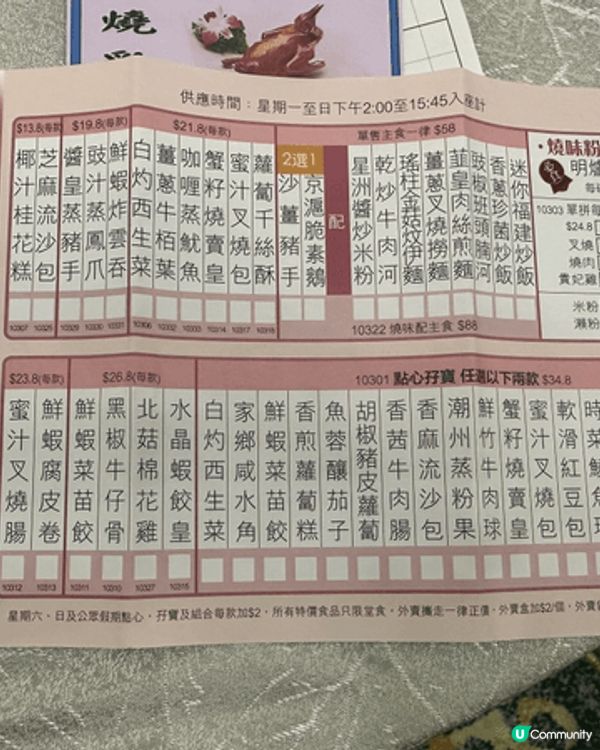 燒
供應時間：星期一至日下午2:00至15:45入座計
$13.8(每款)
椰汁桂花糕
芝麻流沙包
$19.8(每款)
醬皇蒸豬手
豉汁蒸鳳爪
鮮蝦炸雲吞
$21.8(每款)
白灼西生菜
薑蔥牛栢葉
咖喱蒸魷魚
蟹籽燒賣皇
蜜汁叉燒包
蘿蔔千絲酥
2選1
沙薑豬手
京滬脆素鵝
配
單售主食一律 $58
星洲醬炒米粉
乾炒牛肉河
瑤柱金菇炆伊麵
薑蔥叉燒撈麵
韮皇肉絲煎麵
豉椒班頭腩河
香蔥珍菌炒飯
迷你福建炒飯
10307 10325 10329 10330 10331 10306 10332 10333 10314 10317 10318
10322 燒味配主食 $88
·燒味粉
明爐
10303 單拼每
$24.8
叉燒
燒肉
貴妃雞
米粉
瀨粉
$23.8(每款)
蜜汁叉燒腸
鮮蝦腐皮卷
$26.8(每款)
鮮蝦菜苗餃
黑椒牛仔骨
北菇棉花雞
水晶蝦餃皇
10301 點心孖寶 任選以下兩款 $34.8
白灼西生菜
家鄉咸水角
鮮蝦菜苗餃
香煎蘿蔔糕
魚蓉釀茄子
胡椒豬皮蘿蔔
香茜牛肉腸
香麻流沙包
潮州蒸粉果
鮮竹牛肉球
蟹籽燒賣皇
蜜汁叉燒包
軟滑紅豆包
時菜
10312 10313 10311 10310 10327 10315
星期六、日及公眾假期點心、孖寶及組合每款加$2，所有特價食品只限堂食，外賣攜走一律正價，外賣盒加$2/個，外賣
U Community